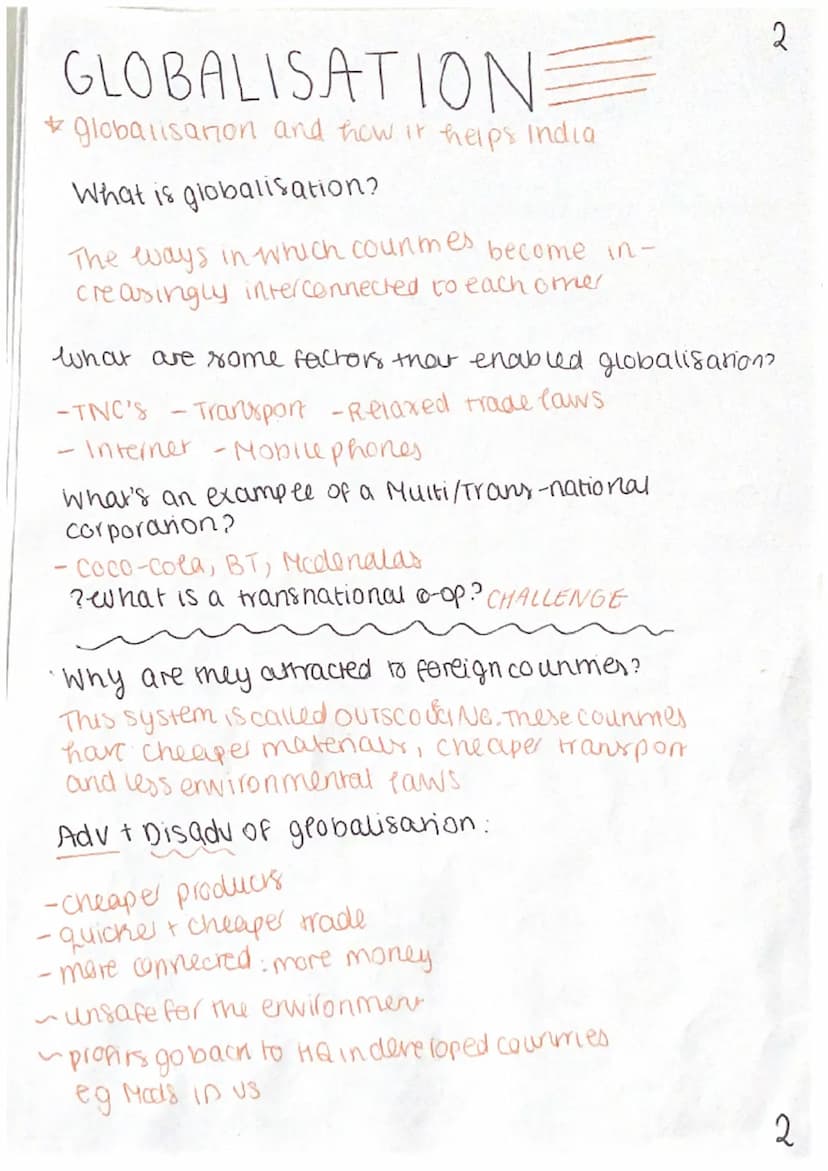 2
GLOBALISATION
* globalisation and how it helps India
What is globalisation?
The ways in which countries become in-
creasingly interconnected to each other
What are some factors that enabled globalisation?
-TNC'S - Transport - Relaxed trade laws
- Internet - Mobile phones
What's an example of a Multi/Trans-national
corporation?
- Coco-cola, BT, Mcdonalds
? What is a transnational co-op? CHALLENGE
Why are they attracted to foreign countries?
This system is called OUTSCOUCING. These countries
have cheaper materials, cheaper transport
and less environmental laws
Adv + Disadv of globalisation:
-cheaper products
- quicker + cheaper trade
- more connected : more money
~ unsafe for the environment
~ profits go back to HQ in developed countries
eg Mcds in US
2